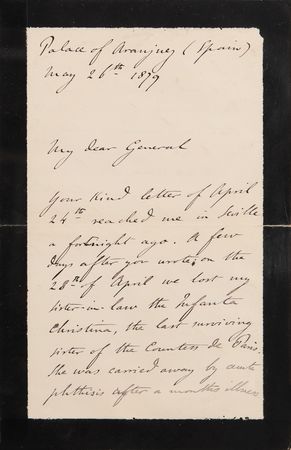 Palace of Aranjuez (Spain)
May 26th 1879
My dear General
Your kind letter of April
24th reached me in Seville
a fortnight ago. A few
days after you wrote, on the
28th of April we lost my
sister-in-law the Infanta
Christina, the last surviving
sister of the Countess de Paris.
She was carried away by acute
phthisis after a months illness